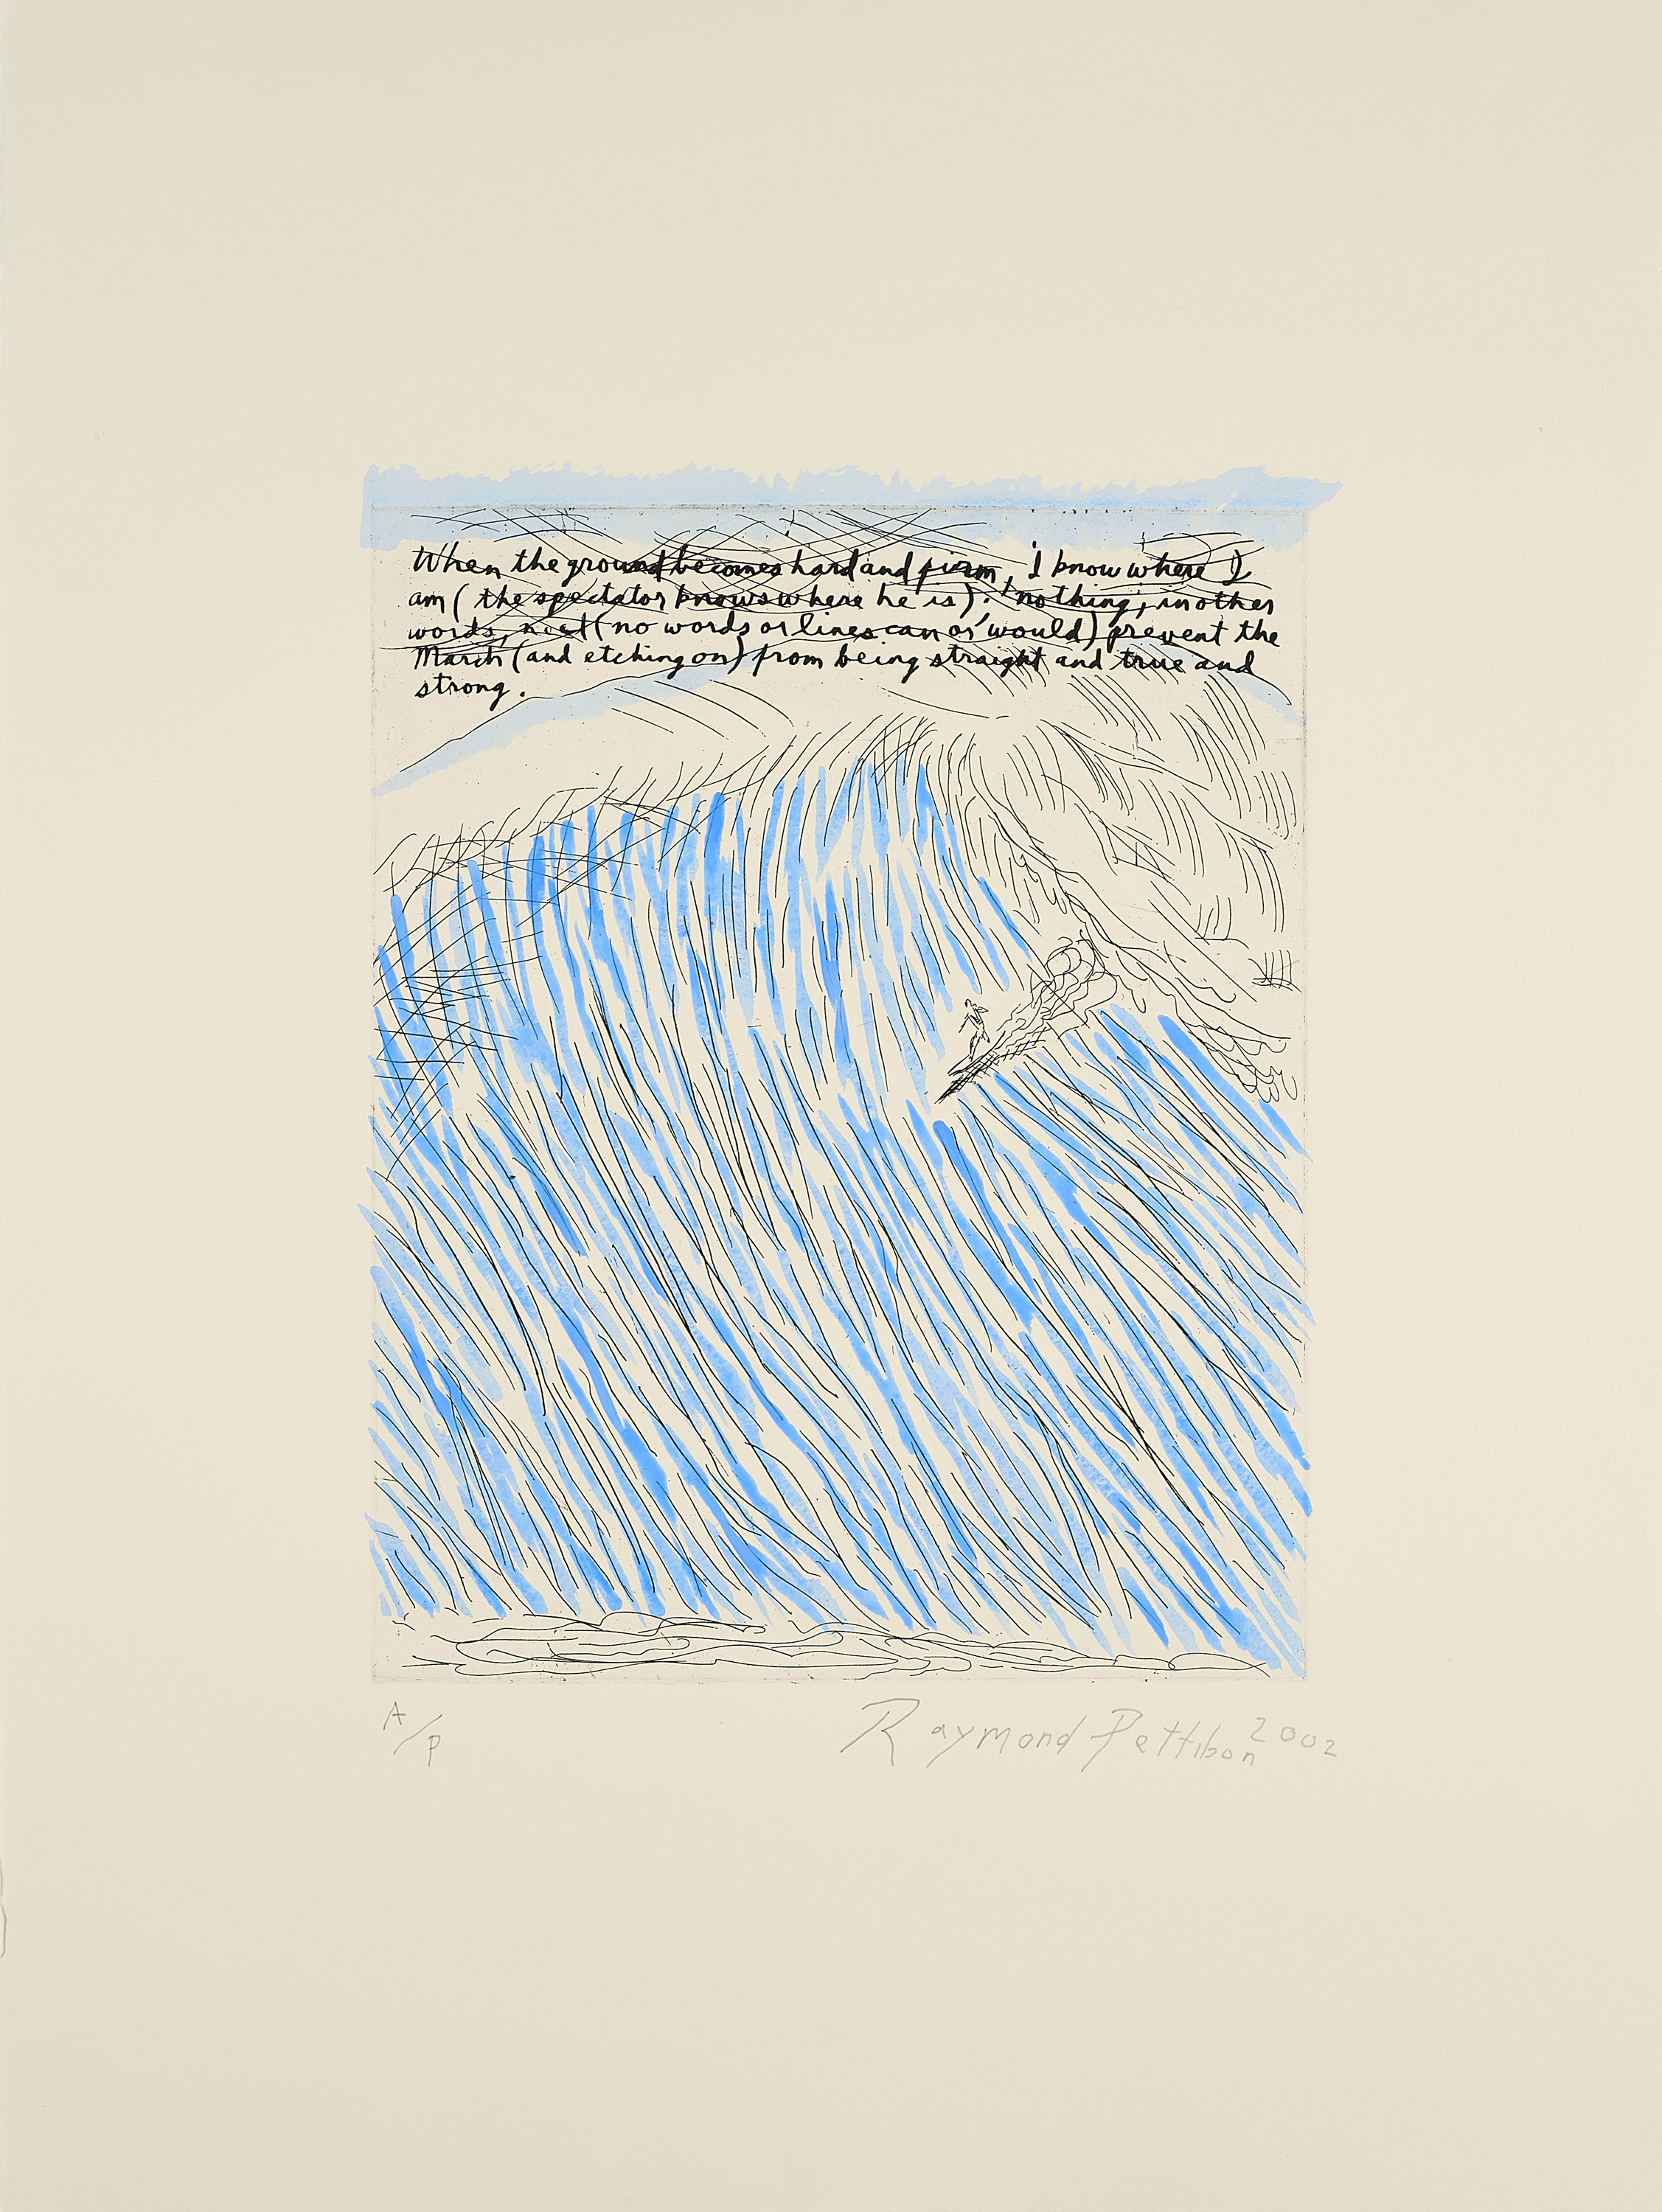 When the ground becomes hard and firm, 'I know where I
am (the spectator knows where he is).' 'nothing,' in other
words, next (no words or lines can or' would) prevent the
March (and etching on) from being straight and true and
strong.
A/P
Raymond Pettibon 2002